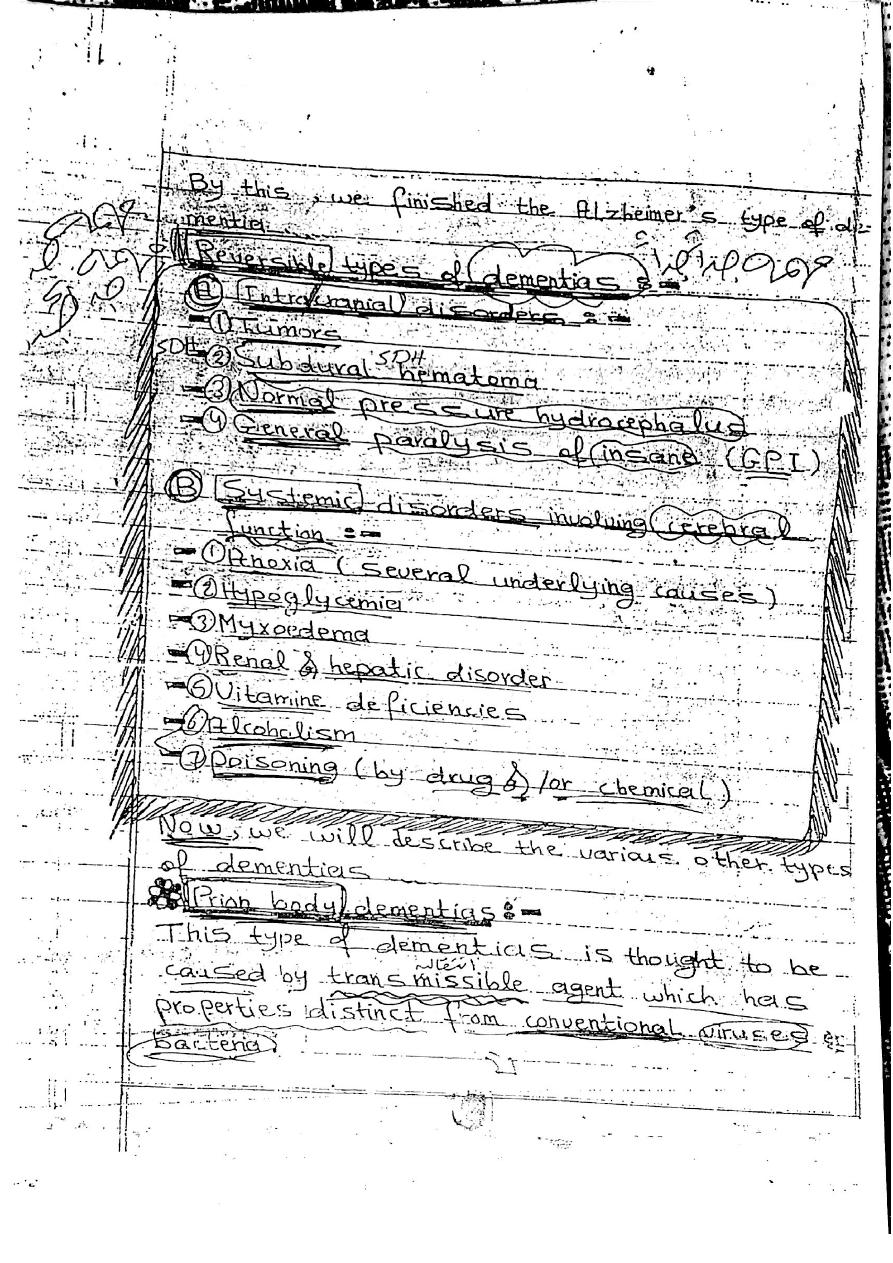 By this, we finished the Alzheimer's type of de-
mentia.
Reversible types of dementias :-
(A) Intra cranial disorders :-
- (1) Tumors
SDH - (2) Subdural SDH hematoma
- (3) Normal pressure hydrocephalus
- (4) General paralysis of insane (GPI)
(B) Systemic disorders involving cerebral
function :-
- (1) Anoxia (several underlying causes)
- (2) Hypoglycemia
- (3) Myxoedema
- (4) Renal & hepatic disorder
- (5) Vitamine deficiencies
- (6) Alcoholism
- (7) Poisoning (by drug & /or chemical)
Now, we will describe the various other types
of dementias
Prion body dementias :-
This type of dementias is thought to be
caused by transmissible agent which has
properties distinct from conventional viruses or
bacteria.